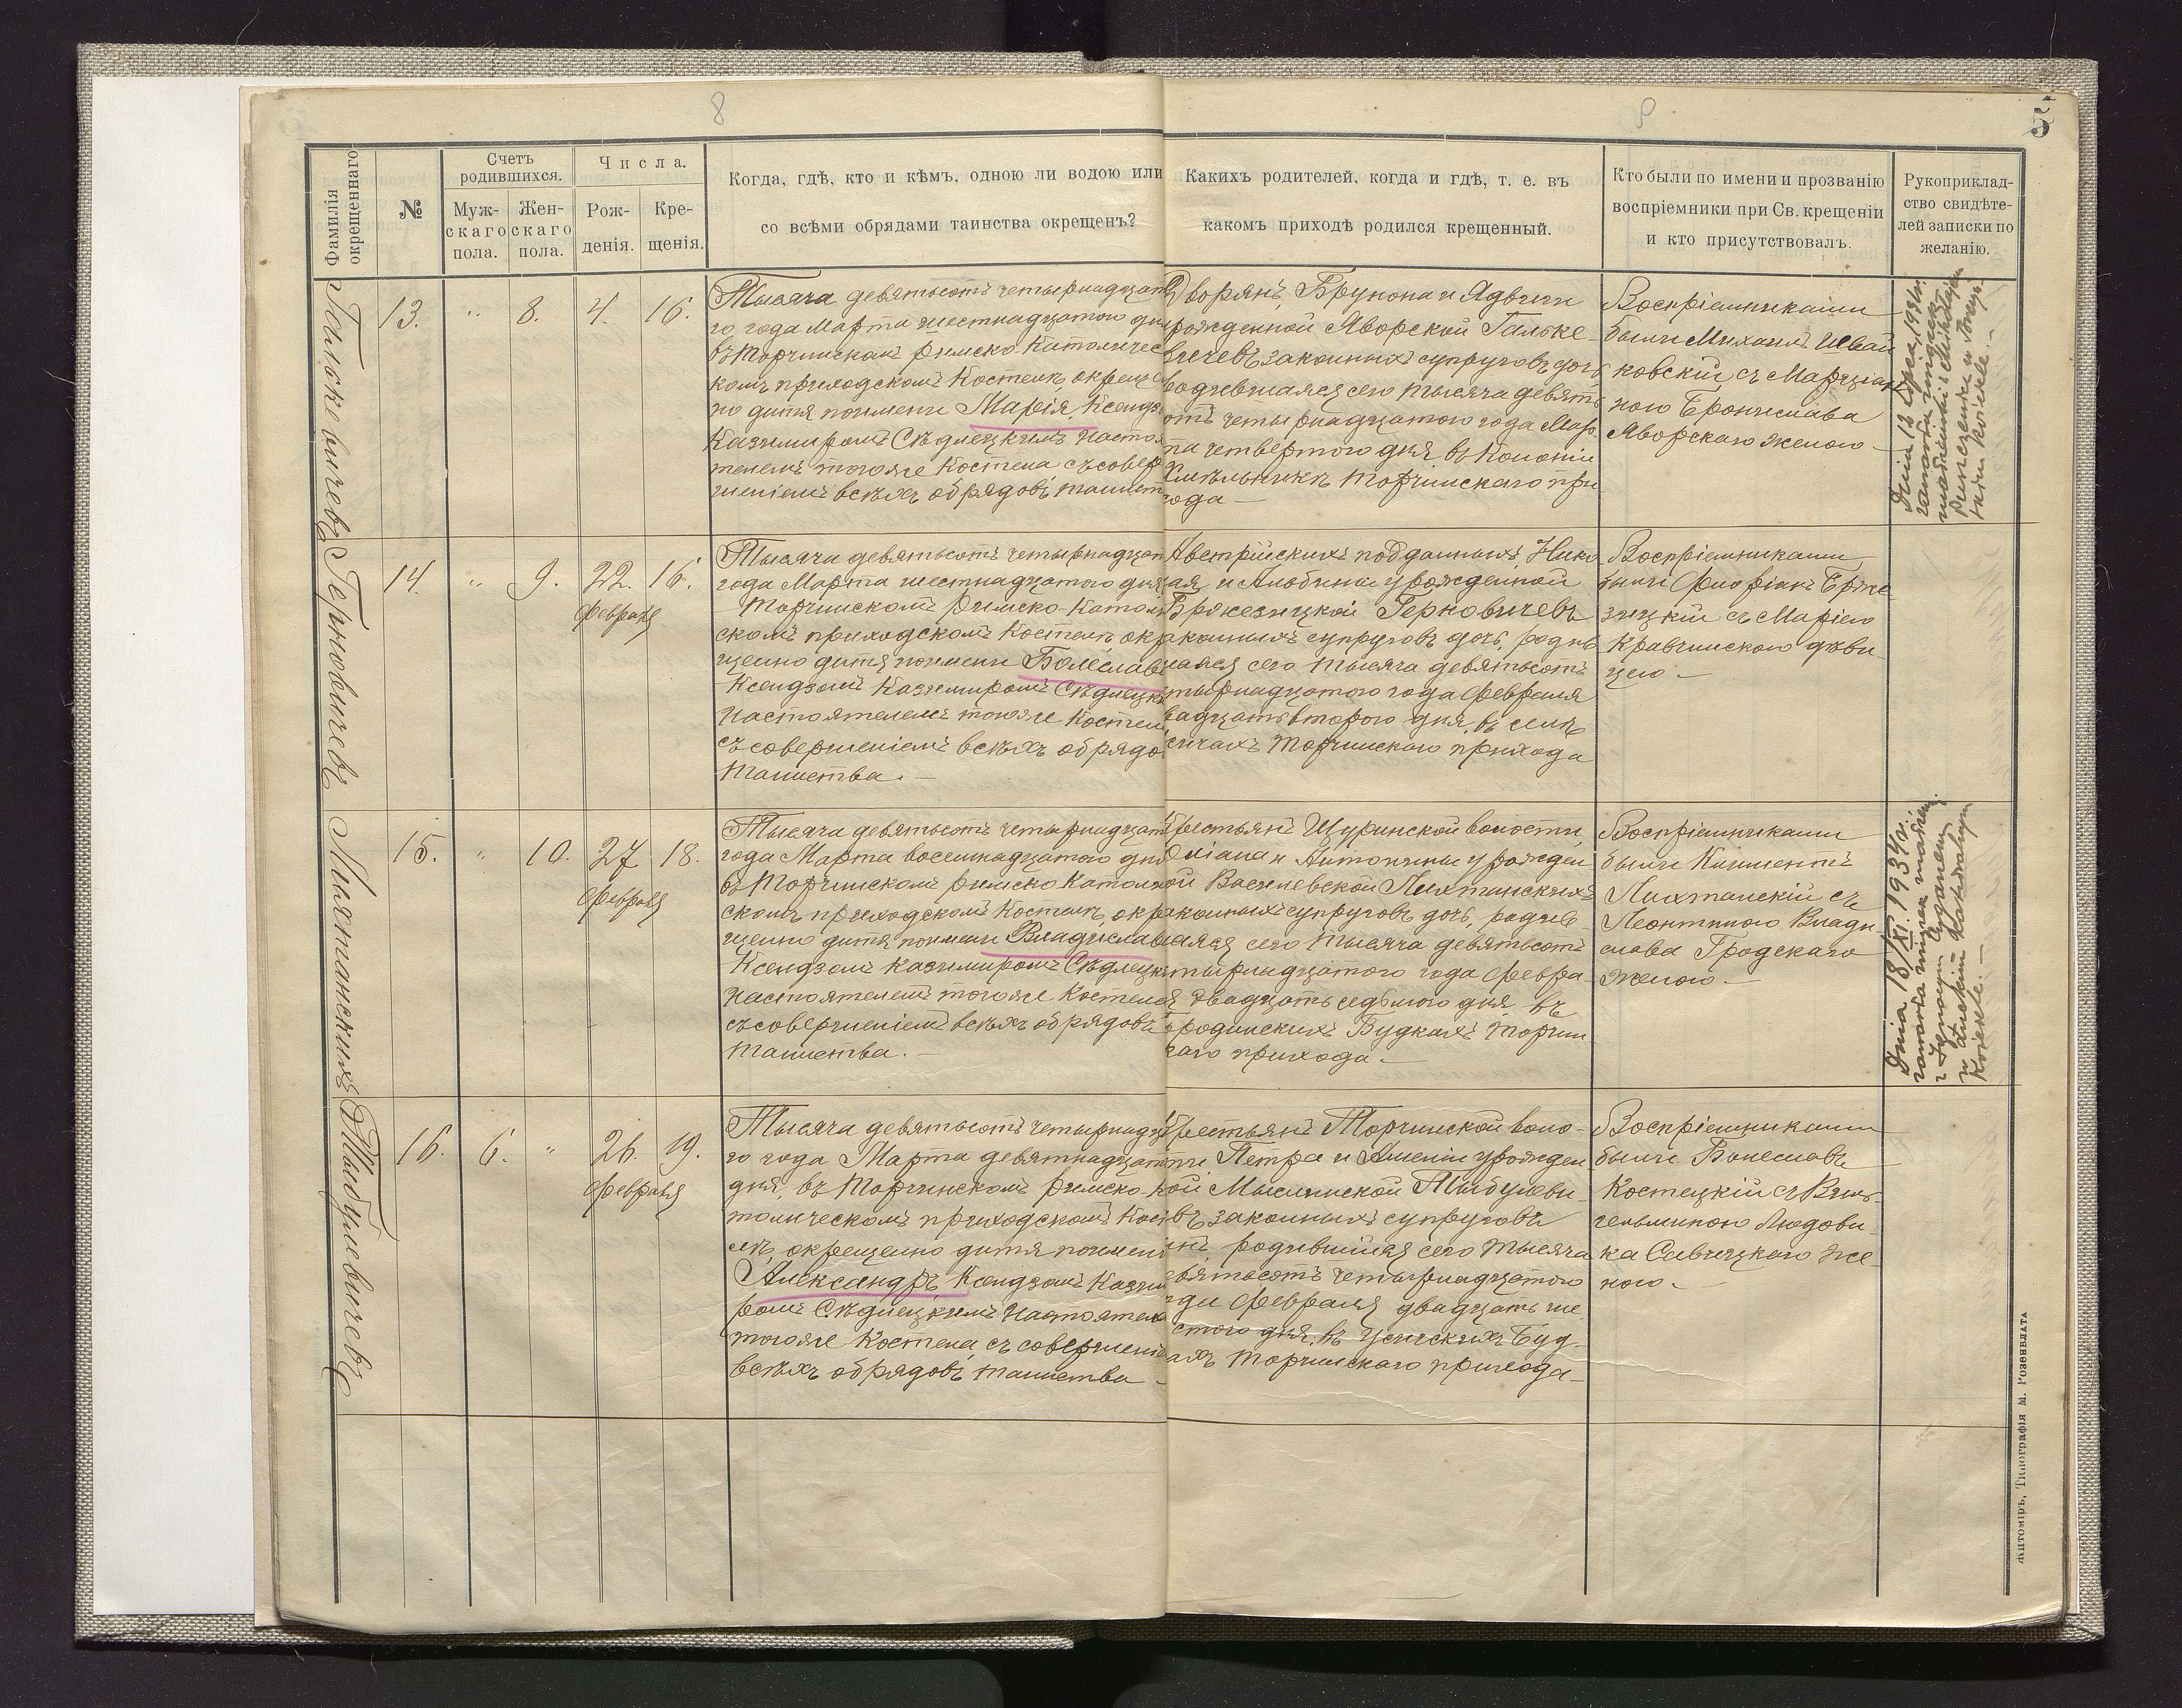 8
8
5
Фамилія окрещеннаго
№
Счетъ родившихся.
Муж-
скаго
пола.
Жен-
скаго
пола.
Числа.
Рож-
денія.
Кре-
щенія.
Когда, гдѣ, кто и кѣмъ, одною ли водою или
со всѣми обрядами таинства окрещенъ?
Какихъ родителей, когда и гдѣ, т. е. въ
какомъ приходѣ родился крещенный.
Кто были по имени и прозванію
воспріемники при Св. крещеніи
и кто присутствовалъ.
Рукоприклад-
ство свидѣте-
лей записки по
желанію.
Галькевичевъ
13. " 8. 4. 16.
Тысяча девятьсотъ четырнадцат
го года Марта шестнадцатого дня
въ Торчинскомъ римско-католичес
комъ приходскомъ костелѣ окреще
но дитя по имени Марія, Ксендзо
Казимиромъ Сѣдлецкимъ Насто
телемъ того же костела съ совер
шеніемъ всѣхъ обрядовъ таинст
Дворянъ, Брунона и Ядвиги
рожденной Яворской Гальке-
вичевъ законныхъ супруговъ дочь
родившаяся сего тысяча девять
отъ четырнадцатого года Мар
та четвертого дня въ колоніи
Хмѣльникѣ Торчинскаго при
хода —
Воспріемниками
были Михаилъ Ивай
ковскій съ Марціан
ною Бронислава
Яворскаго женою —
Герновичевъ
14. " 9. 22. 16.
Февраля
Тысяча девятьсотъ четырнадцат
года Марта шестнадцатого дня
Торчинскомъ римско-катол
скомъ приходскомъ костелѣ, окр
щено дитя по имени Болеслав
Ксендзомъ Казимиромъ Сѣдлецк
Настоятелемъ того же костел
съ совершеніемъ всѣхъ обрядо
таинства. —
Австрійскихъ подданныхъ, Нико
ая и Альбины урожденной
Бржезицкой Герновичевъ
аконныхъ супруговъ дочь, родив
шаяся сего тысяча девятьсотъ
тырнадцатого года февраля
вадцать второго дня, въ селѣ
сичахъ Торчинскаго прихода
Воспріемниками
были Флоріанъ Брже
зицкій съ Маріею
Кравчинскою дѣви-
цею —
Лихтанскихъ
15. " 10. 27 18.
Февраля
Тысяча девятьсотъ четырнадцат
года Марта восемнадцатого дня
въ Торчинскомъ римско-католи
скомъ приходскомъ костелѣ, окр
щено дитя по имени Владислав
Ксендзомъ Казимиромъ Сѣдлецк
Настоятелемъ того же костела
съ совершеніемъ всѣхъ обрядовъ
таинства. —
рестьянъ Щуринской волости,
и Антонины урожден
ой Василевской Лихтанскихъ
аконныхъ супруговъ дочь, родив
аяся сего тысяча девятьсотъ
тырнадцатого года февра
я двадцать седьмого дня, въ
родинскихъ Будкахъ Торчин
каго прихода —
Воспріемниками
были Климентъ
Лихтанскій съ
Леонтиною Влади-
слава Гродскаго
женою —
Dnia 18/XI. 1934r.
zawarła związek małżeń.
w Łuckim Katedralnym
Kościele. —
Тыбулевичевъ
16. 6. " 26. 19.
Февраля
Тысяча девятьсотъ четырнадца
го года Марта девятнадцатого
дня, въ Торчинскомъ римско-к
толическомъ приходскомъ кост
лѣ, окрещено дитя по имени
Александръ, Ксендзомъ Казим
ромъ Сѣдлецкимъ Настоятел
того же костела, съ совершені
всѣхъ обрядовъ таинства —
рестьянъ Торчинской воло-
сти, Петра и Амеліи урожден
ой Мысличской Тыбулеви-
въ законныхъ супруговъ
нъ родившійся сего тысяча
евятьсотъ четырнадцатого
года февраля двадцать ше
стого дня, въ Усичскихъ Буд-
ахъ Торчинскаго прихода —
Воспріемниками
были Болеславъ
Костецкій съ Виль-
гельминою Людови-
ка Савицкаго же-
ною —
Житоміръ, Типографія М. Розенблата